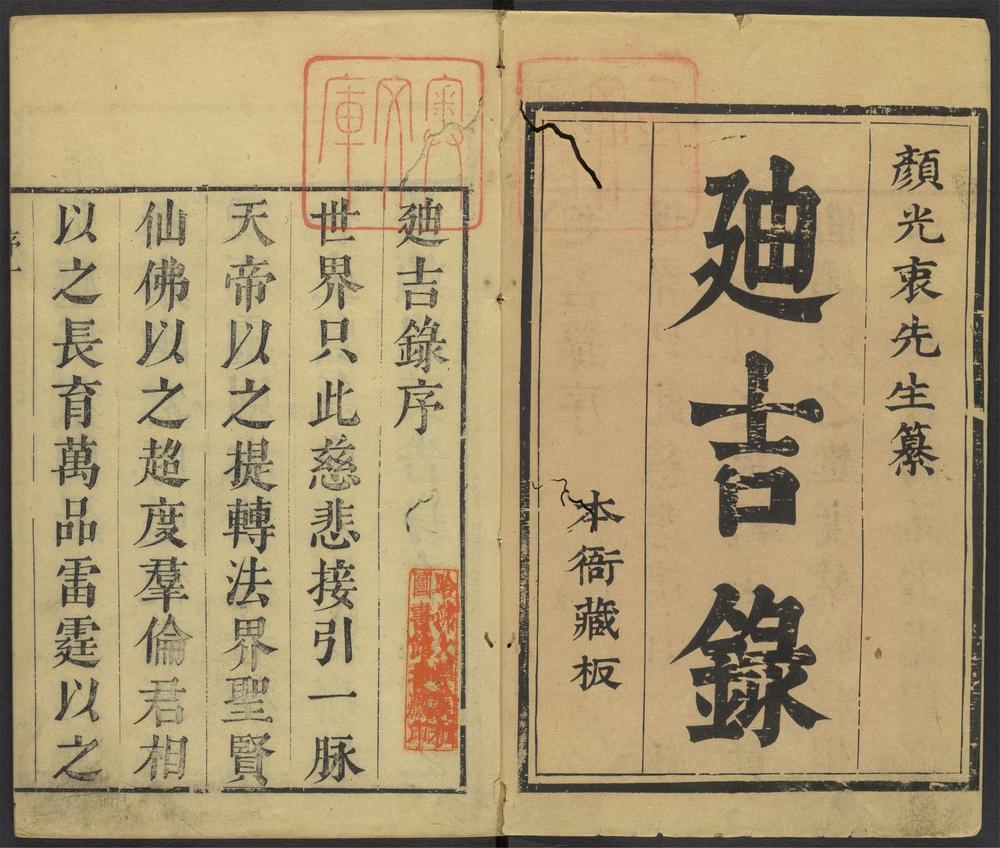 顏光衷先生纂
廸吉錄
本衙藏板
奧文庫
廸吉錄序
世界只此慈悲接引一脉
天帝以之提轉法界聖賢
仙佛以之超度羣倫君相
以之長育萬品雷霆以之
序一